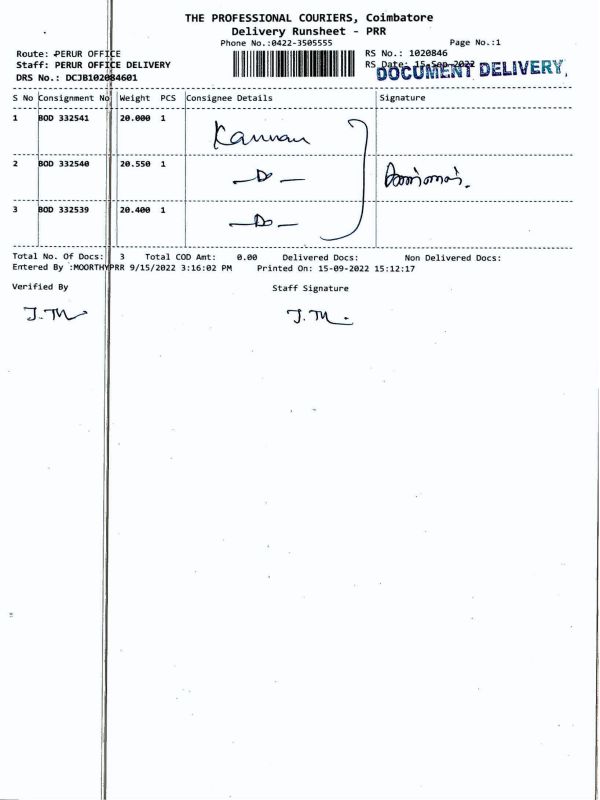 THE PROFESSIONAL COURIERS, Coimbatore
Delivery Runsheet - PRR
Phone No.:0422-3505555 Page No.:1
Route: PERUR OFFICE RS No.: 1020846
Staff: PERUR OFFICE DELIVERY RS Date: 15-Sep-2022
DOCUMENT DELIVERY.
DRS No.: DCJB102084601
S No Consignment No Weight PCS Consignee Details Signature
1 BOD 332541 20.000 1 Kannan
2 BOD 332540 20.550 1 —Do—
3 BOD 332539 20.400 1 —Do—
Total No. Of Docs: 3 Total COD Amt: 0.00 Delivered Docs: Non Delivered Docs:
Entered By :MOORTHYPRR 9/15/2022 3:16:02 PM Printed On: 15-09-2022 15:12:17
Verified By Staff Signature
J.M J.M.